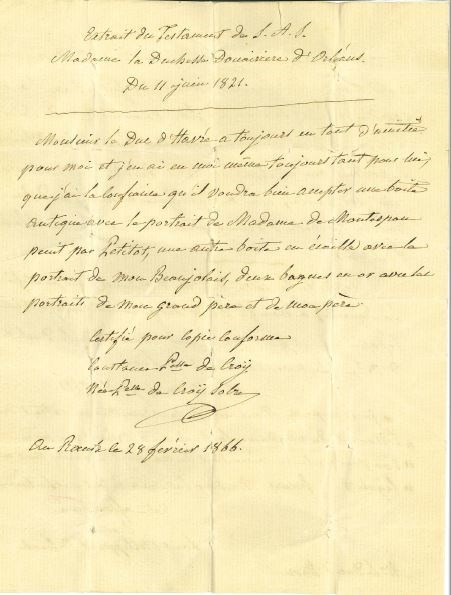 Extrait du Testament de S. A. S.
Madame la Duchesse Douairière d'Orléans.
Du 11 juin 1821.
Monsieur le Duc d'Havré a toujours eu tant d'amitié
pour moi et j'en ai en moi même toujours tant pour lui,
que j'ai la confiance qu'il voudra bien accepter une boîte
antique avec le portrait de Madame de Montespan
peint par Petitot, une autre boîte en écaille avec le
portrait de mon Beaujolais, deux bagues en or avec les
portraits de mon grand père et de mon père
Certifié pour copie conforme
Constance Psse de Croÿ
Née Psse de Croÿ Solre
Au Rœulx le 28 février 1866.